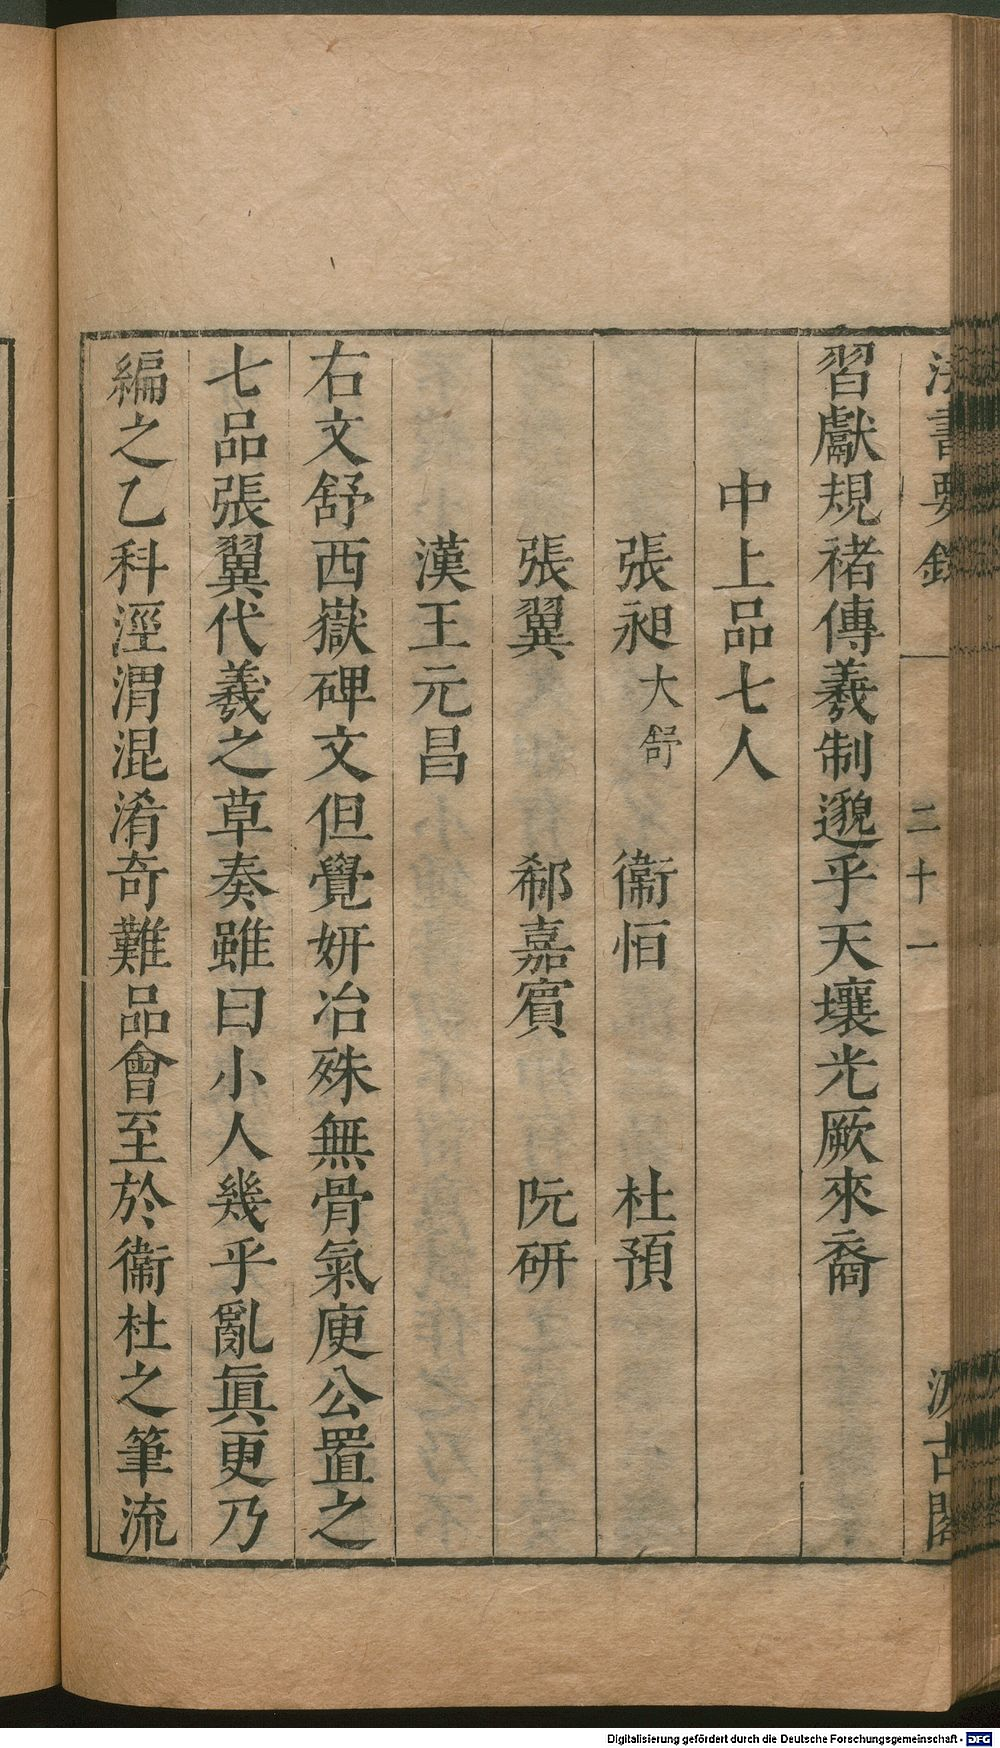 法書要錄 二十一 汲古閣
習獻規褚傳羲制邈乎天壤光厥來裔
中上品七人
張昶大舒 衞恒 杜預
張翼 郗嘉賓 阮研
漢王元昌
右文舒西嶽碑文但覺妍冶殊無骨氣庾公置之
七品張翼代羲之草奏雖曰小人幾乎亂眞更乃
編之乙科涇渭混淆奇難品會至於衞杜之筆流
Digitalisierung gefördert durch die Deutsche Forschungsgemeinschaft - DFG